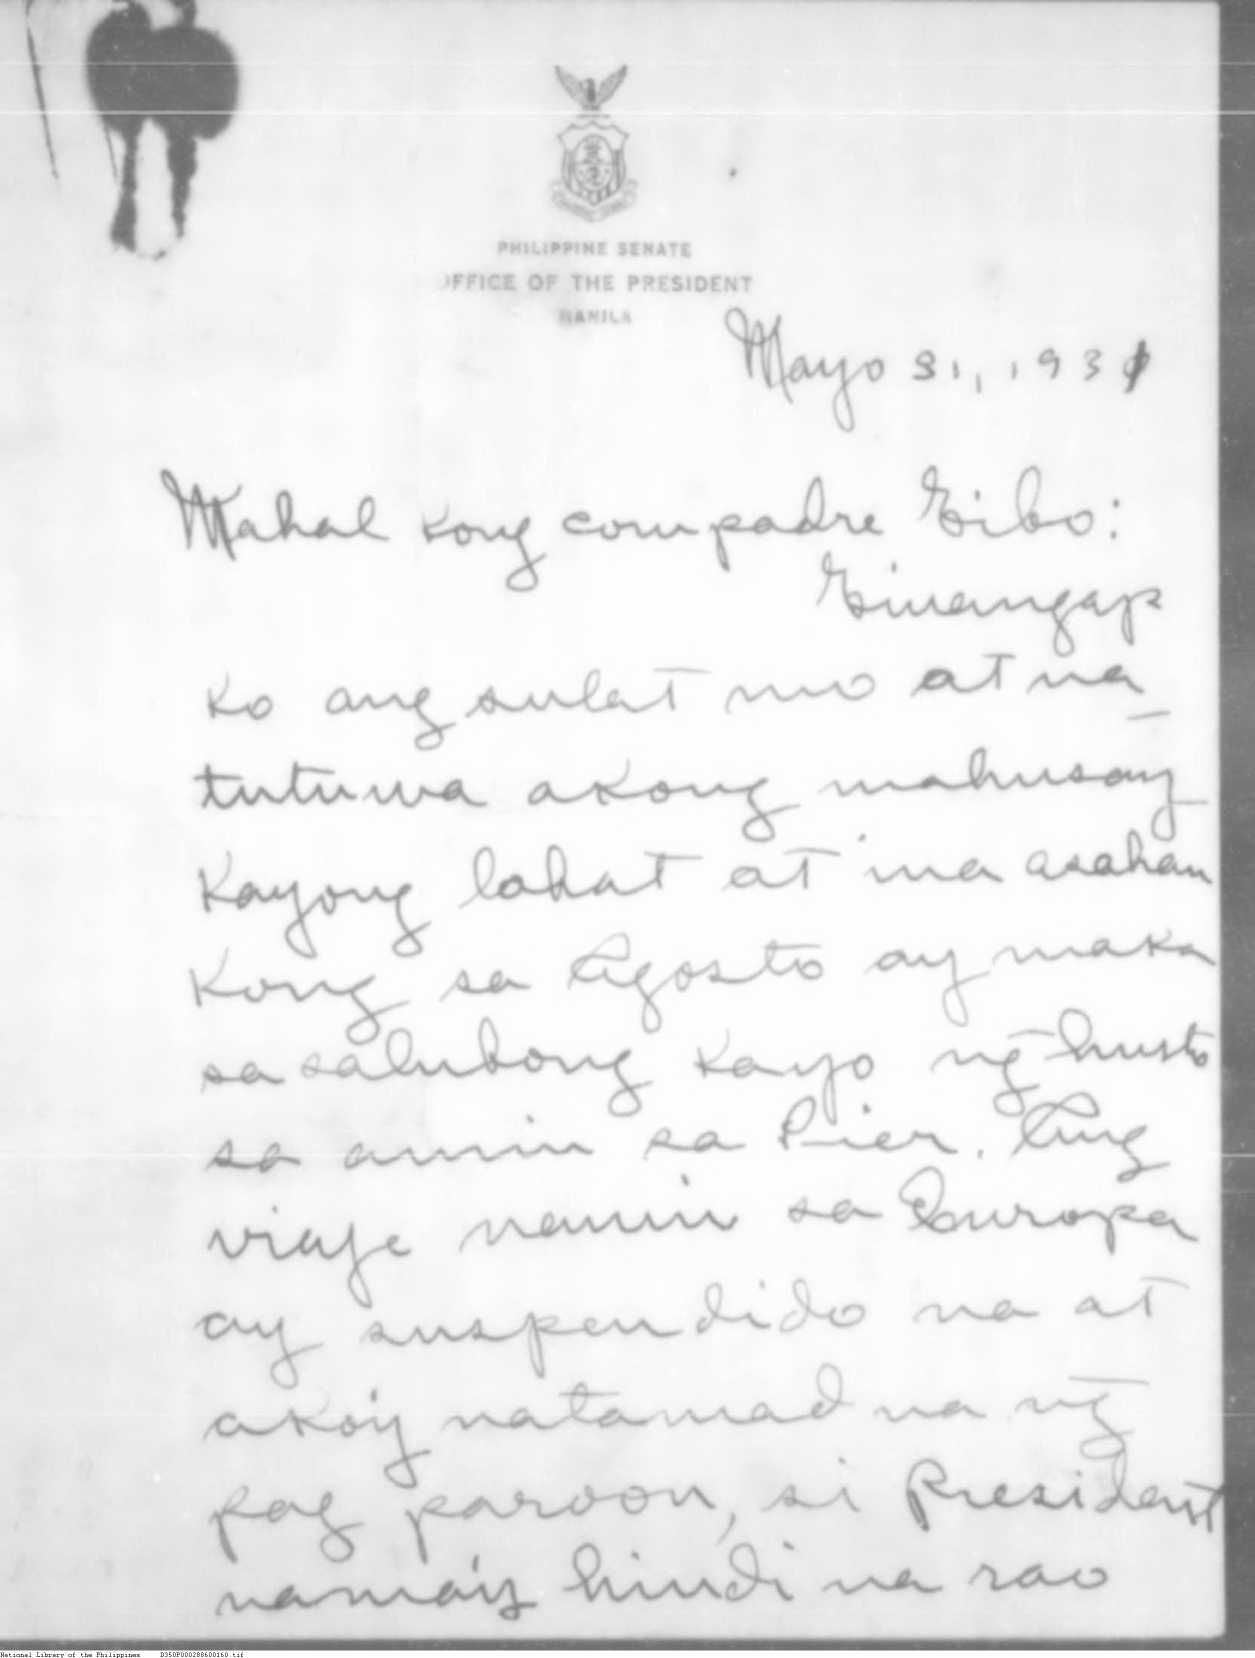 PHILIPPINE SENATE
OFFICE OF THE PRESIDENT
MANILA
Mayo 31, 1931
Mahal kong compadre Gibo:
Ginangap
ko ang sulat mo at na-
tutuwa akong mahusay
kayong lahat at ina asahan
kong sa Agosto ay maka
sasalubong kayo ng̃ husto
sa amin sa Pier. Ang
viaje namin sa Europa
ay suspendido na at
ako'y natamad na ng̃
pag paroon, si President
nama'y hindi na rao
National Library of the Philippines D350P000288600160.tif